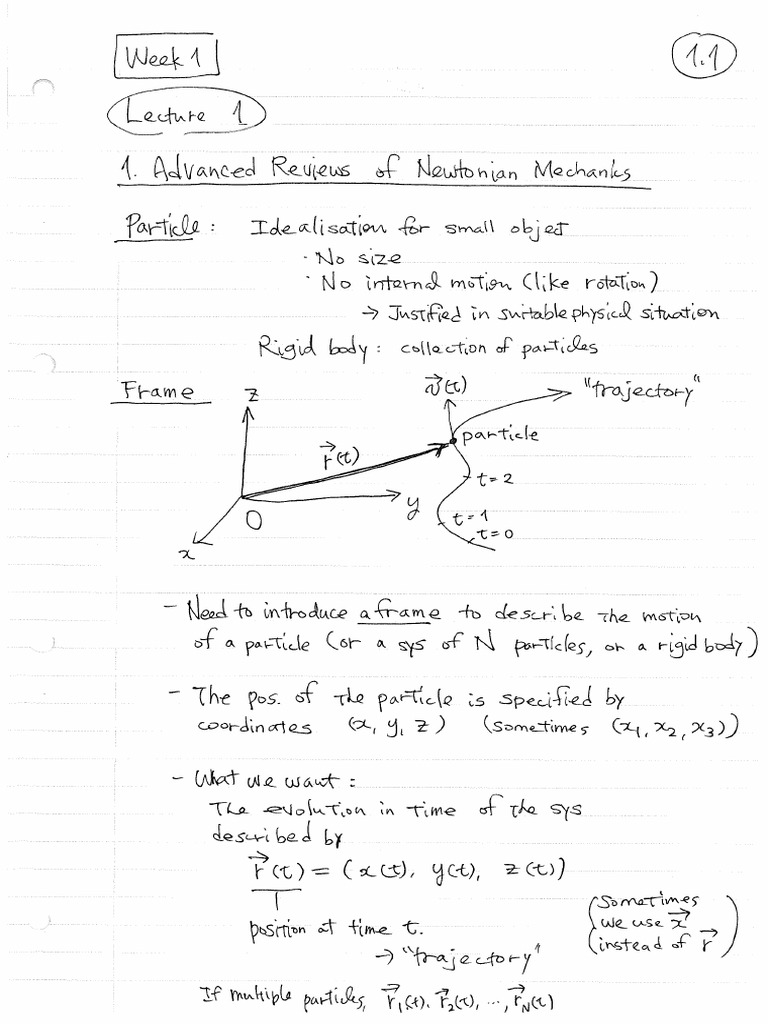 Week 1
1.1
Lecture 1
1. Advanced Reviews of Newtonian Mechanics
Particle: Idealisation for small object
· No size
· No internal motion (like rotation)
→ Justified in suitable physical situation
Rigid body: collection of particles
Frame
z
v⃗(t)
"trajectory"
r⃗(t)
particle
t=2
y
O
t=1
t=0
x
- Need to introduce a frame to describe the motion
of a particle (or a sys of N particles, or a rigid body)
- The pos. of the particle is specified by
coordinates (x, y, z) (sometimes (x₁, x₂, x₃))
- What we want:
The evolution in time of the sys
described by
r⃗(t) = (x(t), y(t), z(t))
position at time t.
(Sometimes
we use x⃗
instead of r⃗)
→ "trajectory"
If multiple particles, r⃗₁(t), r⃗₂(t), ..., r⃗N(t)